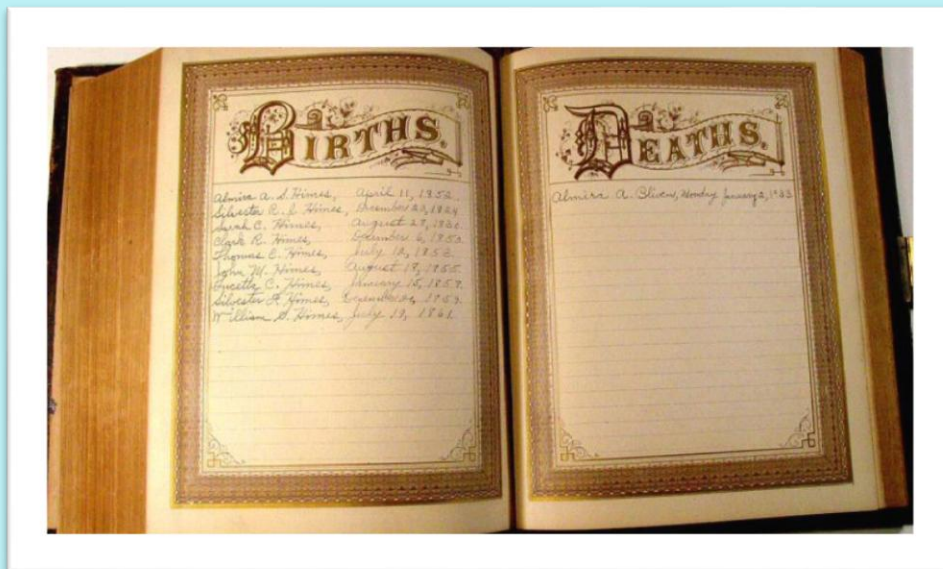 BIRTHS.
Almira A. S. Himes, April 11, 1852.
Silvester R. J. Himes, December 23, 1824
Sarah C. Himes, August 29, 1830
Clark R. Himes, December 6, 1850
Thomas E. Himes, July 12, 1852.
John M. Himes, August 18, 1855.
Lucetta C. Himes, January 15, 1857.
Silvester F. Himes, 1859.
William S. Himes, July 19, 1861
DEATHS.
Almira A. Bliven, Monday January 2, 1933